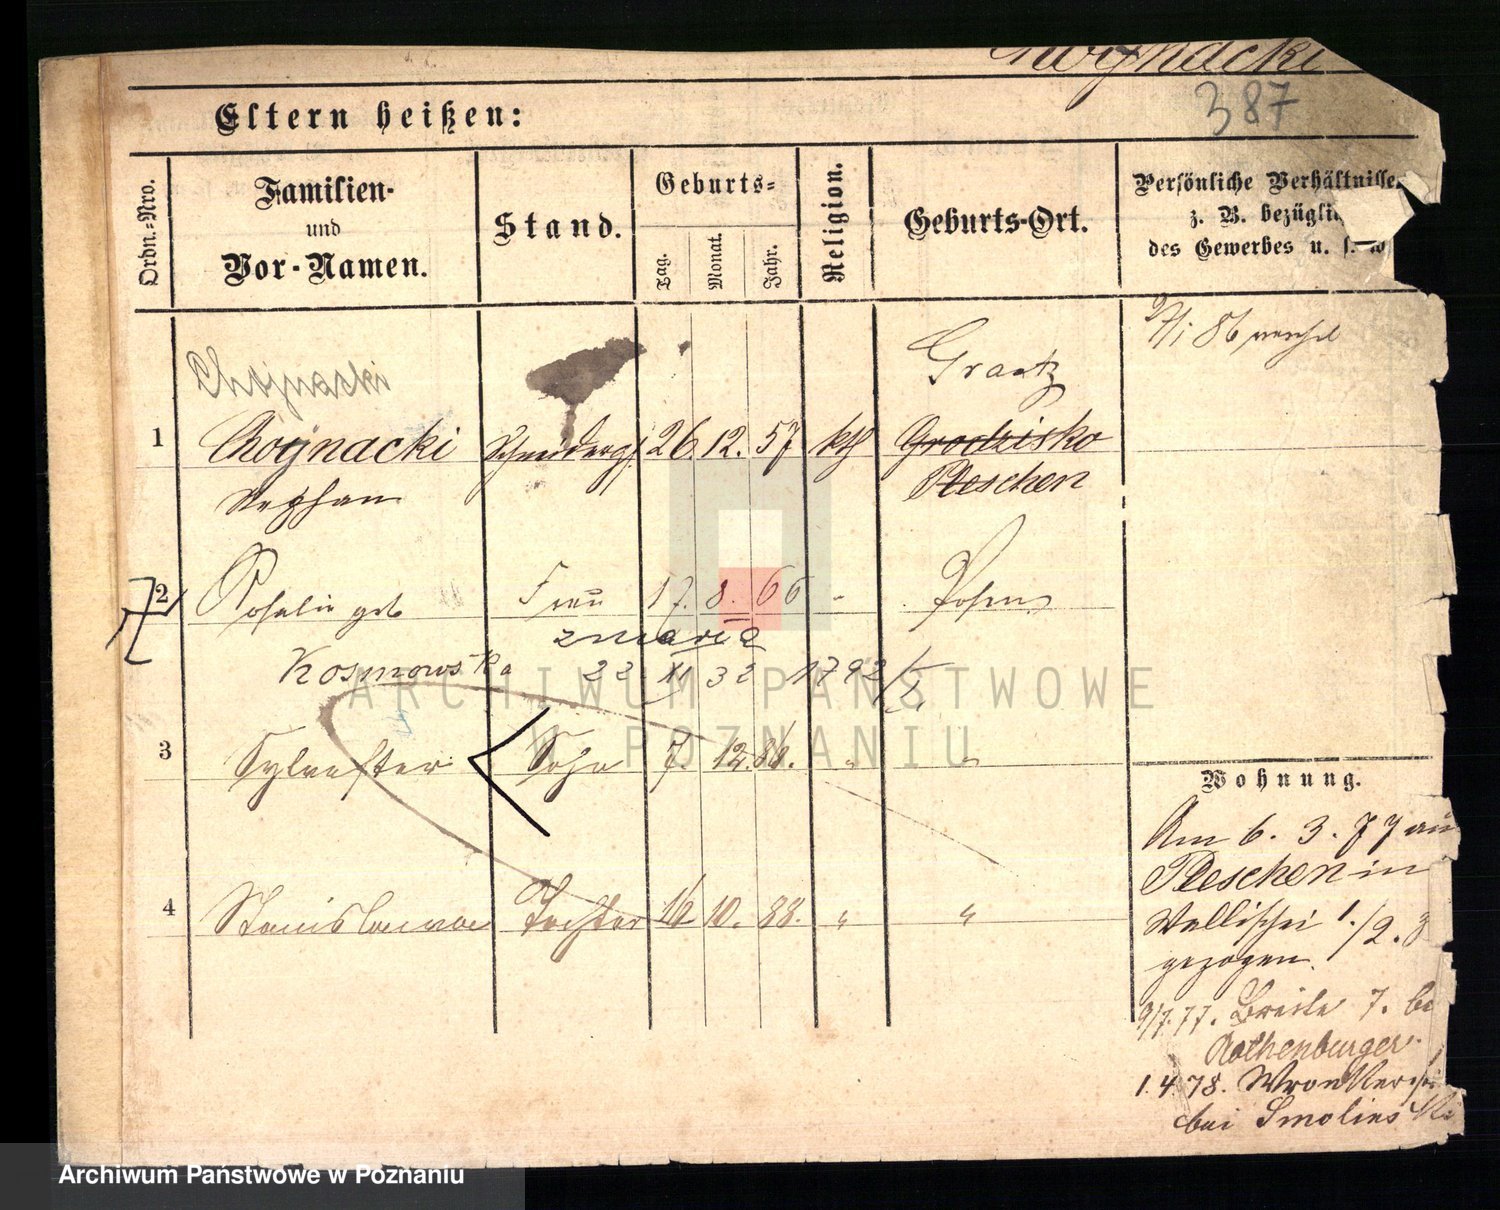 Chojnacki
387
Eltern heißen:
Ordn.-Nro.
Familien-
und
Vor-Namen.
Stand.
Geburts-
Tag.
Monat.
Jahr.
Religion.
Geburts-Ort.
Persönliche Verhältnisse
z. B. bezügli
des Gewerbes u. s. w
9/1 86
Chojnacki
Graetz
1 Chojnacki Schneiderges 26. 12. 57 kth Grodzisko
Stephan Pleschen
2 Rosalie geb Frau 17. 8. 66 " Posen
zmarła
Kosmowska 22 XI 32 1792/
3 Sylvester Sohn 7. 12. 86. " "
Wohnung.
Am 6. 3. 77 aus
Pleschen in
Wallischei 1./2. 3
gezogen.
4 Stanislawa Tochter 16 10. 88. " "
9/7. 77. Breite 7. be
Rothenburger.
1. 4. 78. Wronker
bei Smolinski
ARCHIWUM PAŃSTWOWE
W POZNANIU
Archiwum Państwowe w Poznaniu